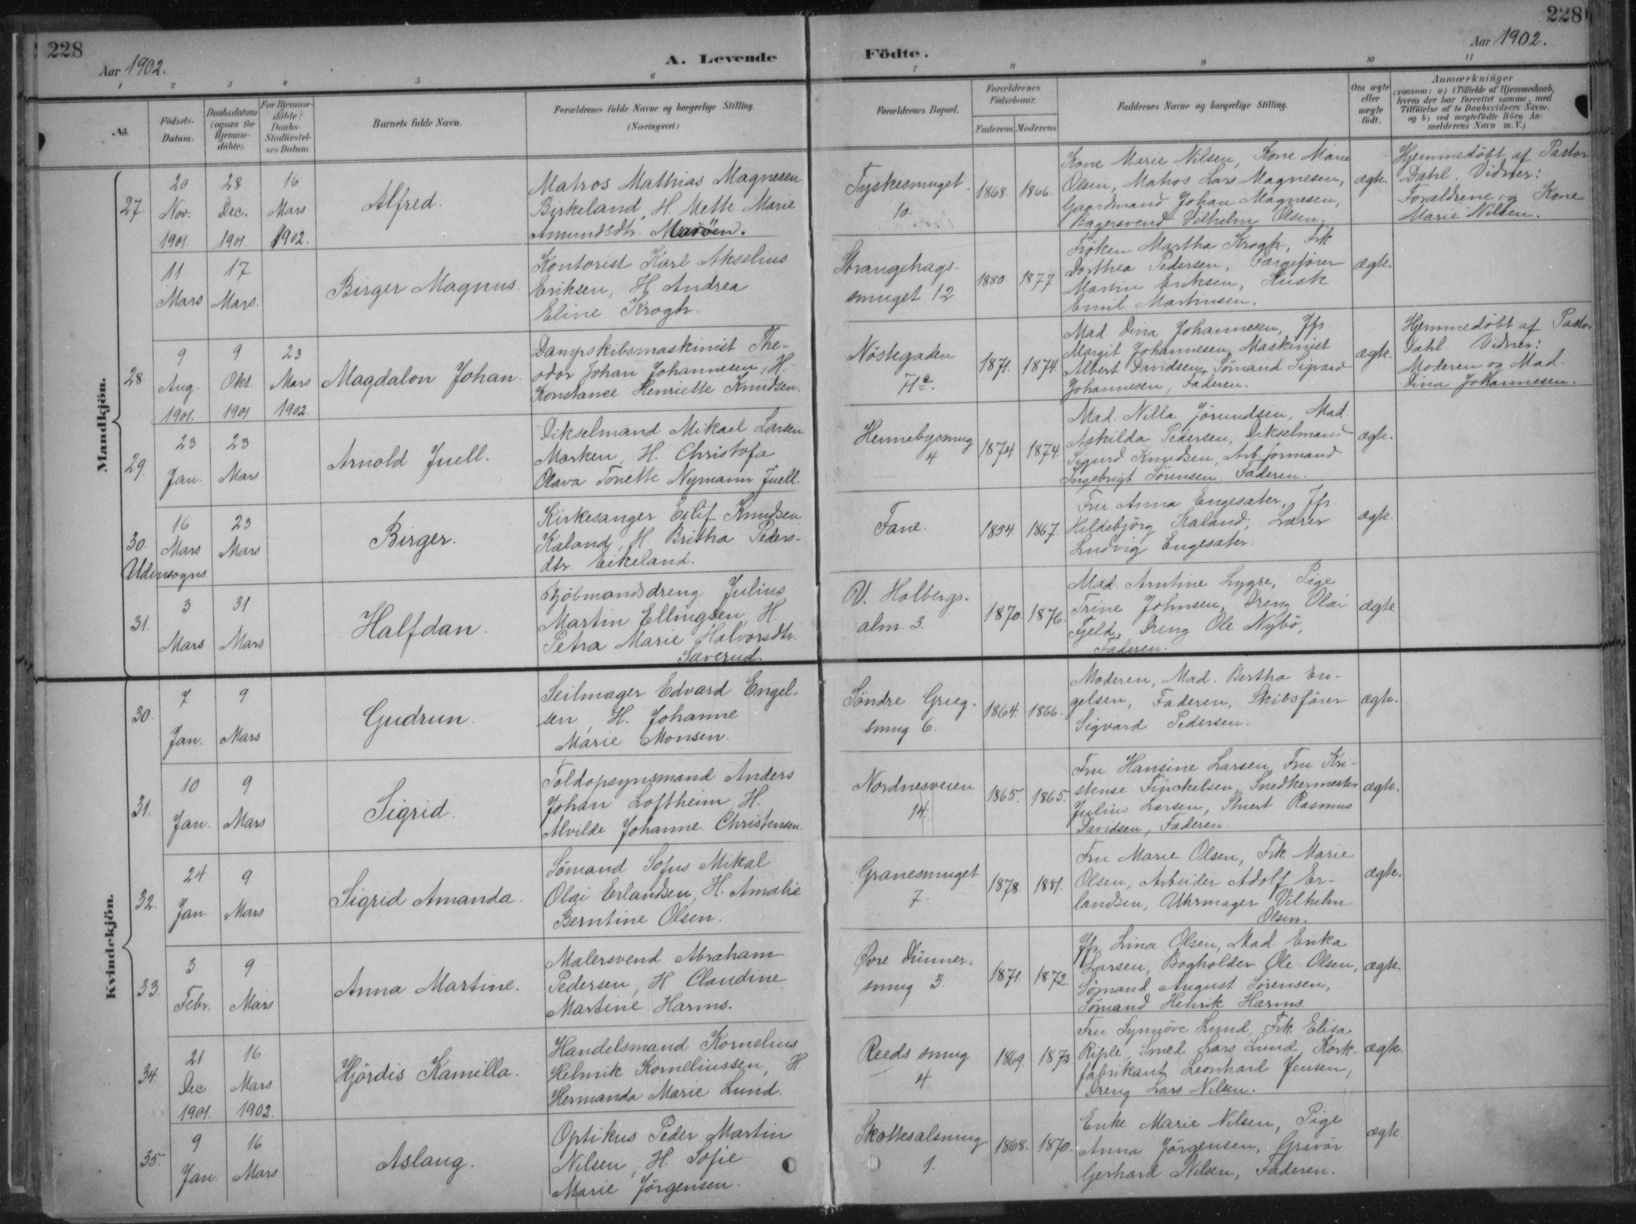 228
Aar 1902.
A. Levende
Födte.
Aar 1902.
228
1 2 3 4 5 6 7 8 9 10 11
No.
Födsels-
Datum.
Daabsdatum
(ogsaa for
Hjemme-
döbte).
For Hjemme-
döbte:
Daabs-
Stadfæstel-
ses Datum
Barnets fulde Navn.
Forældrenes fulde Navne og borgerlige Stilling.
(Næringsvei)
Forældrenes Bopæl.
Forældrenes
Födselsaar.
Faderens. Moderens.
Faddernes Navne og borgerlige Stilling.
Om ægte
eller
uægte
födt.
Anmærkninger
(saasom: a) i Tilfælde af Hjemmedaab,
hvem der har forrettet samme, med
Tilföielse af to Daabsvidners Navne.
og b) ved uægtefödte Börn An-
melderens Navn m. V.)
Mandkjön.
27.
20
Nov.
1901.
28
Dec.
1901.
16
Mars
1902.
Alfred.
Matros Mathias Magnesen
Birkeland, H. Mette Marie
Amundsdtr.
Tyskesmuget
10.
1868 1866.
Kone Marie Nilsen, Kone Marie
Olsen, Matros Lars Magnesen,
Gaardmand Johan Magnesen,
Bagersvend Vilhelm Olsen.
ægte.
Hjemmedöbt af Pastor
Dahl. Vidner:
Forældrene og Kone
Marie Nilsen.
11
Mars
17
Mars.
Birger Magnus.
Kontorist Karl Akselius
Eriksen, H. Andrea
Eline Krogh.
Strangehags-
smuget 12
1880 1877
Fröken Martha Krogh, Frk
Dorthea Pedersen, Færgefører
Martin Eriksen, Kusk
Emil Martinsen.
ægte.
28
9
Aug.
1901.
9
Okt.
1901
23
Mars
1902
Magdalon Johan.
Dampskibsmaskinist The-
odor Johan Johannesen, H.
Konstance Henriette Knudsen.
Nöstegaden
71a.
1871. 1874.
Mad. Dina Johannesen, Jfr.
Margit Johannesen, Maskinist
Albert Davidsen, Sömand Sigvard
Johannesen, Faderen.
ægte.
Hjemmedöbt af Pastor
Dahl. Vidner:
Moderen og Mad.
Dina Johannesen.
29.
23
Jan.
23
Mars
Arnold Juell.
Dikselmand Mikael Larsen
Marken, H. Christofa
Olava Tonette Nymann Juell.
Hennebysmug
4
1874 1874.
Mad. Nilla Jörundsen, Mad.
Askilda Pedersen, Dikselmand
Sigurd Knudsen, Arb.formand
Ingebrigt Sörensen, Faderen.
ægte.
30.
Udensogns
16
Mars
23
Mars
Birger.
Kirkesanger Eilif Knudsen
Kaland, H. Britha Peders-
dtr. Eikeland.
Fane.
1854. 1867.
Fru Anna Engesæter, Jfr.
Hildebjörg Kaland, Lærer
Ludvig Engesæter.
ægte.
31.
3
Mars
31
Mars
Halfdan.
Kjöbmandsdreng Julius
Martin Ellingsen, H.
Petra Marie Halvorsdtr.
Sæverud.
V. Holbergs-
alm. 3.
1870. 1876.
Mad. Arntine Lygre, Pige
Trine Johnsen, Dreng Olai
Fjeld, Dreng Ole Nybö,
Faderen.
ægte
Kvindekjön.
30.
7
Jan.
9
Mars
Gudrun.
Seilmager Edvard Engel-
sen, H. Johanne
Marie Monsen.
Söndre Grieg-
smug 6.
1864. 1866.
Moderen, Mad. Bertha En-
gelsen, Faderen, Skibsförer
Sigvard Pedersen.
ægte.
31.
10
Jan.
9
Mars
Sigrid.
Toldopsynsmand Anders
Johan Loftheim, H.
Alvilde Johanne Christensen.
Nordnesveien
14.
1865. 1865.
Fru Hansine Larsen, Fru Kri-
stense Finckelsen, Snedkermester
Julius Larsen, Stuert Rasmus
Davidsen, Faderen.
ægte.
32.
24
Jan.
9
Mars
Sigrid Amanda.
Sömand Sofus Mikal
Olai Erlandsen, H. Amalie
Berntine Olsen.
Granesmuget
7.
1878. 1881.
Fru Marie Olsen, Frk. Marie
Olsen, Arbeider Adolf Er-
landsen, Uhrmager Vilhelm
Olsen.
ægte.
33.
3
Febr.
9
Mars
Anna Martine.
Malersvend Abraham
Pedersen, H. Claudine
Martine Harms.
Övre Dünner-
smug 3.
1871. 1872.
Jfr. Lina Olsen, Mad. Erika
Larsen, Bogholder Ole Olsen,
Sömand August Sörensen,
Sömand Henrik Harms.
ægte.
34.
21
Dec
1901.
16
Mars
1902.
Hjördis Kamilla.
Handelsmand Kornelius
Helmik Korneliussen, H.
Hermanda Marie Lund.
Reeds smug
4.
1869. 1873
Fru Synnöve Lund, Frk. Elisa
Riple, Smed Lars Lund, Kork-
fabrikant Leonhard Jensen,
Dreng Lars Nilsen.
ægte.
35.
9
Jan.
16
Mars
Aslaug.
Optikus Peder Martin
Nilsen, H. Sofie
Marie Jörgensen.
Skottesalsmug
1.
1868. 1870.
Enke Marie Nilsen, Pige
Anna Jörgensen, Gravör
Gerhard Nilsen, Faderen.
ægte